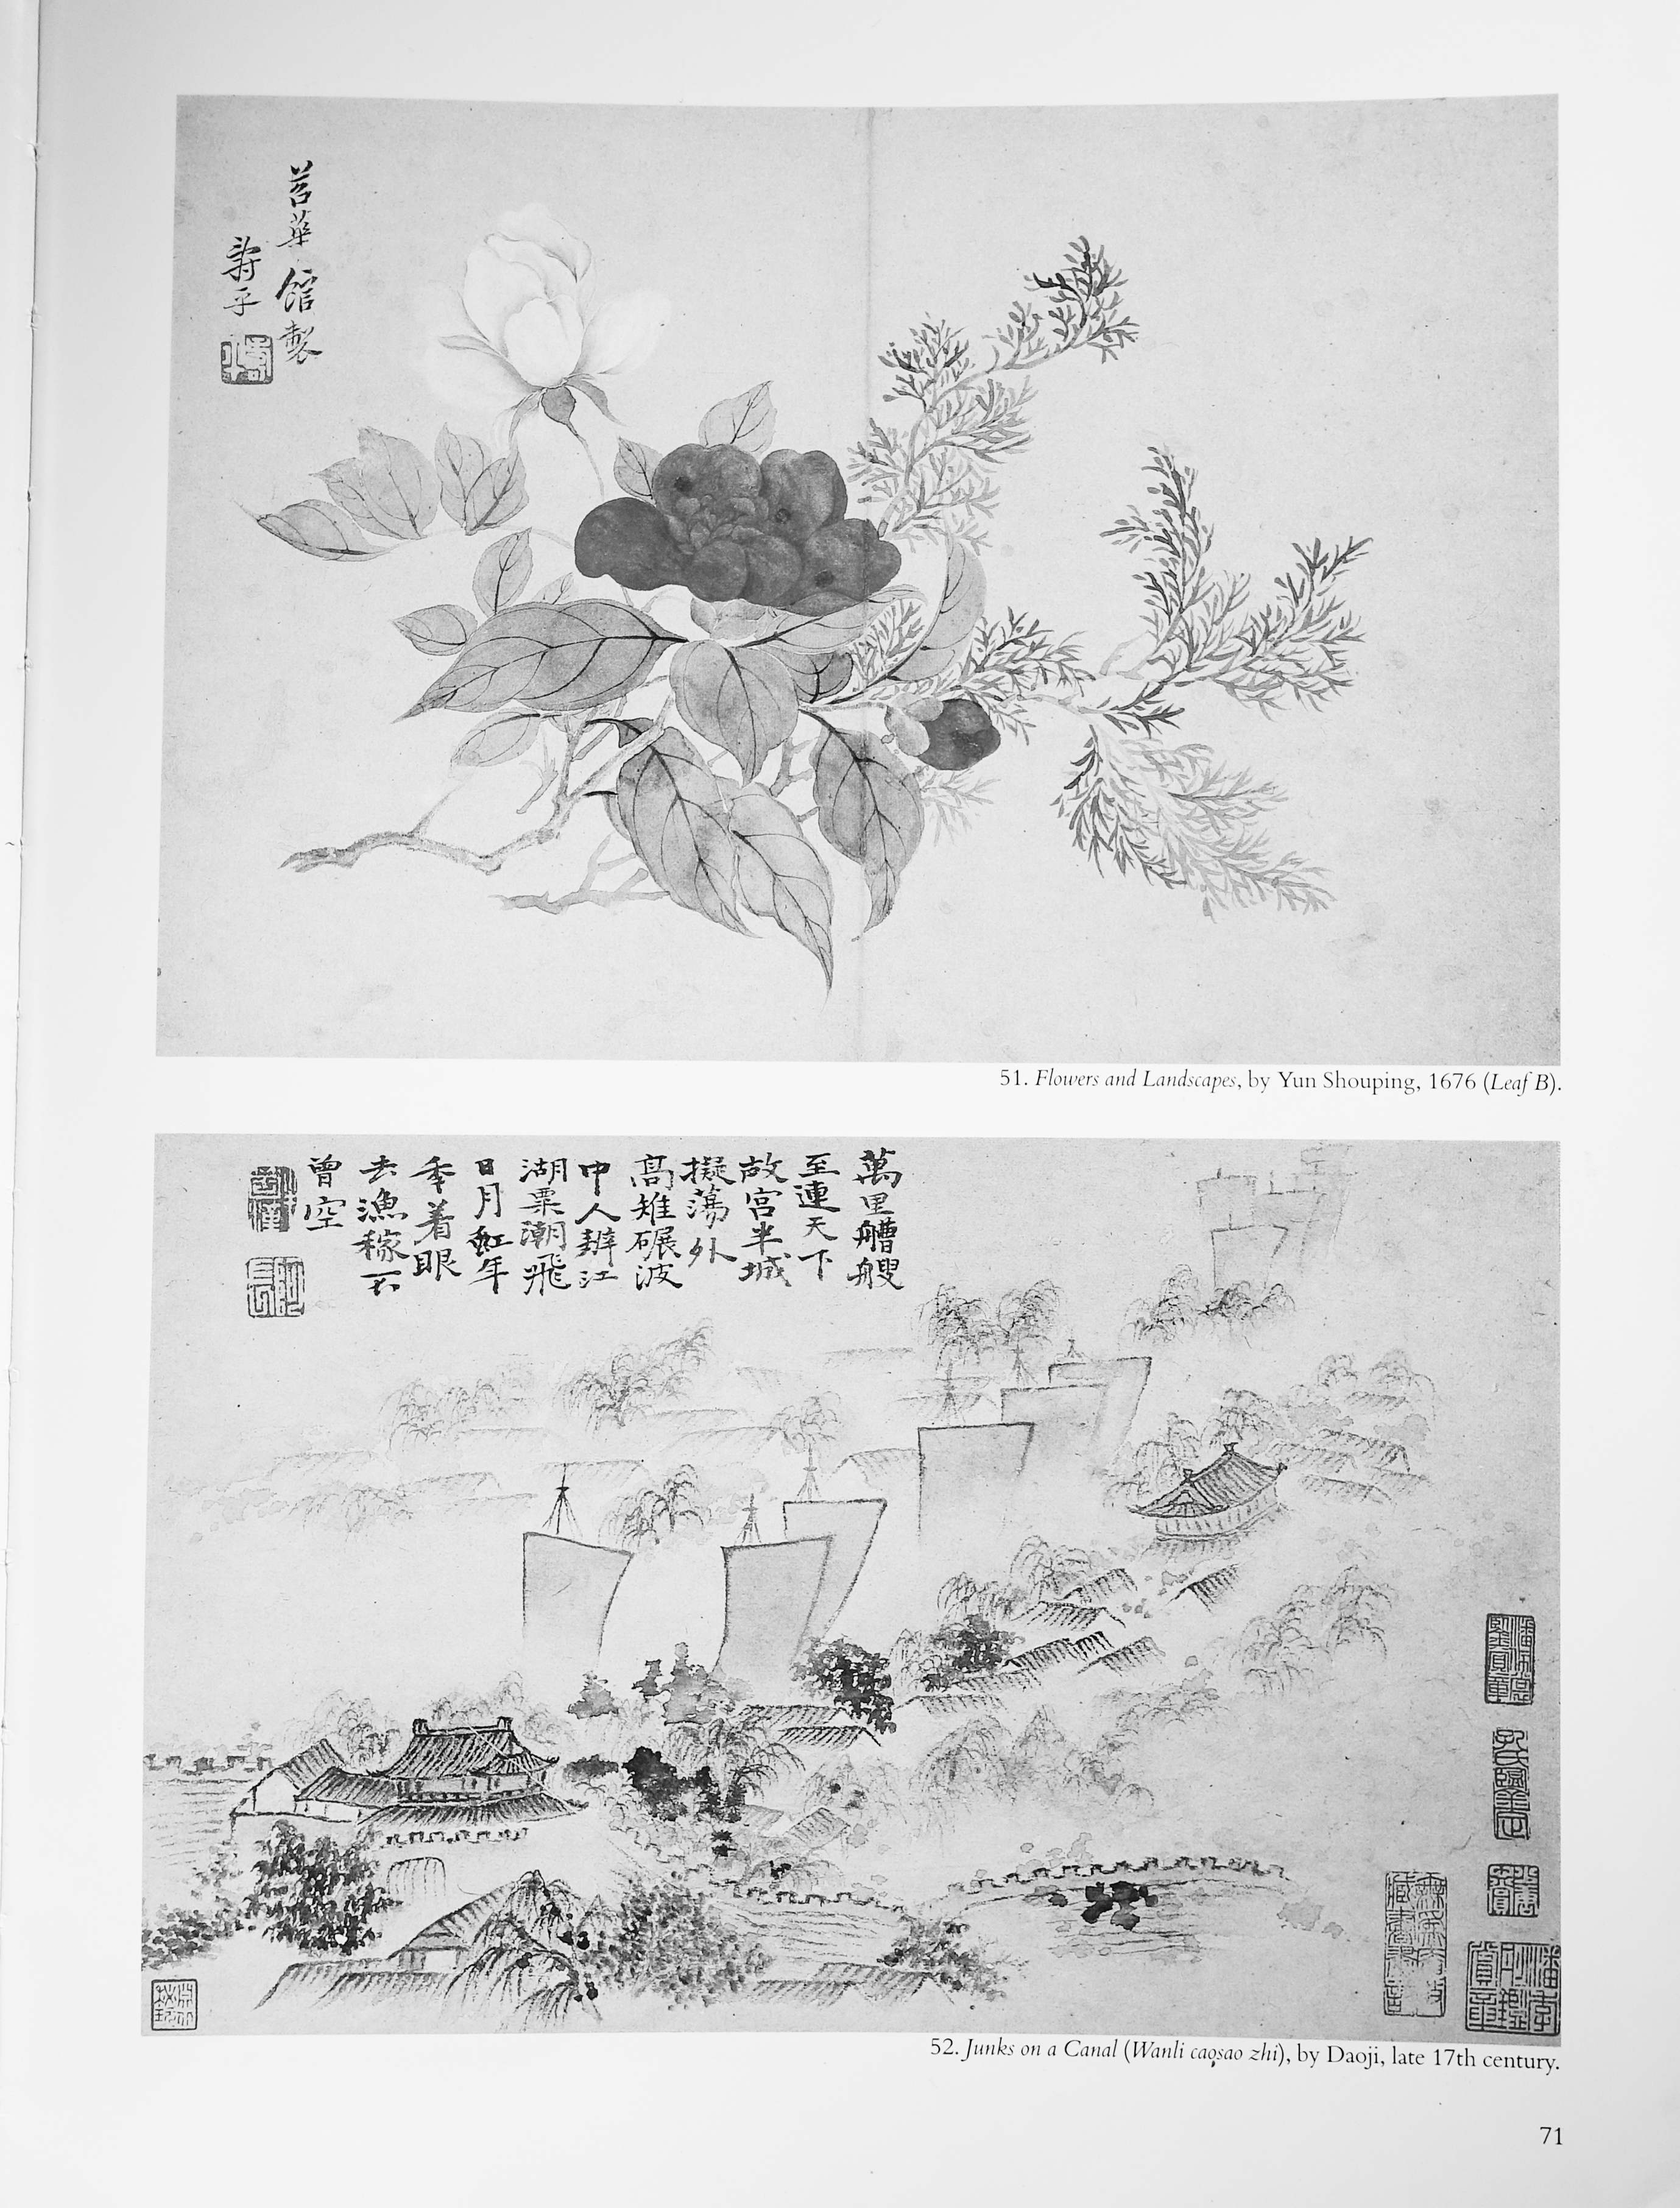 苕華館製
壽平
51. Flowers and Landscapes, by Yun Shouping, 1676 (Leaf B).
萬里艚艘
至連天下
故宮半城
擬蕩外
高雉碾波
中人辨江
湖粟潮飛
日月虹年
季着眼
去漁稼不
曾空
52. Junks on a Canal (Wanli caosao zhi), by Daoji, late 17th century.
71